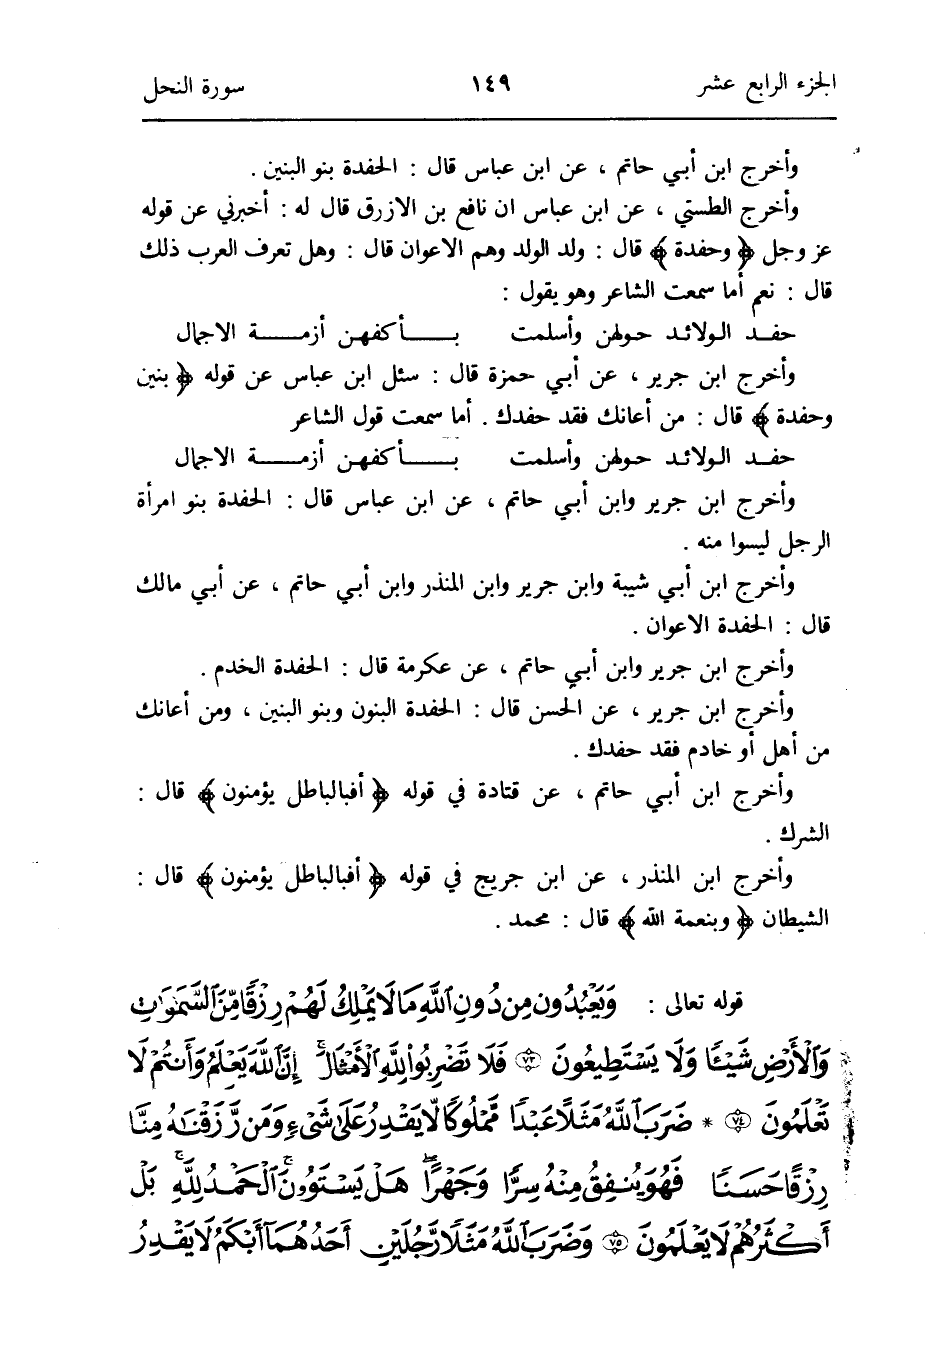 الجزء الرابع عشر ١٤٩ سورة النحل
وأخرج ابن أبي حاتم ، عن ابن عباس قال : الحفدة بنو البنين .
وأخرج الطستي ، عن ابن عباس ان نافع بن الازرق قال له : أخبرني عن قوله
عز وجل ﴿ وحفدة ﴾ قال : ولد الولد وهم الاعوان قال : وهل تعرف العرب ذلك
قال : نعم أما سمعت الشاعر وهو يقول :
حفــد الـولائـد حـولهن وأسلمت بـــــأكفهـن أزمـــــة الاجمال
وأخرج ابن جرير ، عن أبي حمزة قال : سئل ابن عباس عن قوله ﴿ بنين
وحفدة ﴾ قال : من أعانك فقد حفدك . أما سمعت قول الشاعر
حفــد الـولائـد حـولهن وأسلمت بـــــأكفهـن أزمـــــة الاجمال
وأخرج ابن جرير وابن أبي حاتم ، عن ابن عباس قال : الحفدة بنو امرأة
الرجل ليسوا منه .
وأخرج ابن أبي شيبة وابن جرير وابن المنذر وابن أبي حاتم ، عن أبي مالك
قال : الحفدة الاعوان .
وأخرج ابن جرير وابن أبي حاتم ، عن عكرمة قال : الحفدة الخدم .
وأخرج ابن جرير ، عن الحسن قال : الحفدة البنون وبنو البنين ، ومن أعانك
من أهل أو خادم فقد حفدك .
وأخرج ابن أبي حاتم ، عن قتادة في قوله ﴿ أفبالباطل يؤمنون ﴾ قال :
الشرك .
وأخرج ابن المنذر ، عن ابن جريج في قوله ﴿ أفبالباطل يؤمنون ﴾ قال :
الشيطان ﴿ وبنعمة الله ﴾ قال : محمد .
قوله تعالى : وَيَعْبُدُونَ مِن دُونِ ٱللَّهِ مَا لَا يَمْلِكُ لَهُمْ رِزْقًا مِّنَ ٱلسَّمَٰوَٰتِ
وَٱلْأَرْضِ شَيْـًٔا وَلَا يَسْتَطِيعُونَ ﴿٧٣﴾ فَلَا تَضْرِبُوا۟ لِلَّهِ ٱلْأَمْثَالَ ۚ إِنَّ ٱللَّهَ يَعْلَمُ وَأَنتُمْ لَا
تَعْلَمُونَ ﴿٧٤﴾ * ضَرَبَ ٱللَّهُ مَثَلًا عَبْدًا مَّمْلُوكًا لَّا يَقْدِرُ عَلَىٰ شَىْءٍ وَمَن رَّزَقْنَٰهُ مِنَّا
رِزْقًا حَسَنًا فَهُوَ يُنفِقُ مِنْهُ سِرًّا وَجَهْرًا ۖ هَلْ يَسْتَوُۥنَ ۚ ٱلْحَمْدُ لِلَّهِ ۚ بَلْ
أَكْثَرُهُمْ لَا يَعْلَمُونَ ﴿٧٥﴾ وَضَرَبَ ٱللَّهُ مَثَلًا رَّجُلَيْنِ أَحَدُهُمَآ أَبْكَمُ لَا يَقْدِرُ